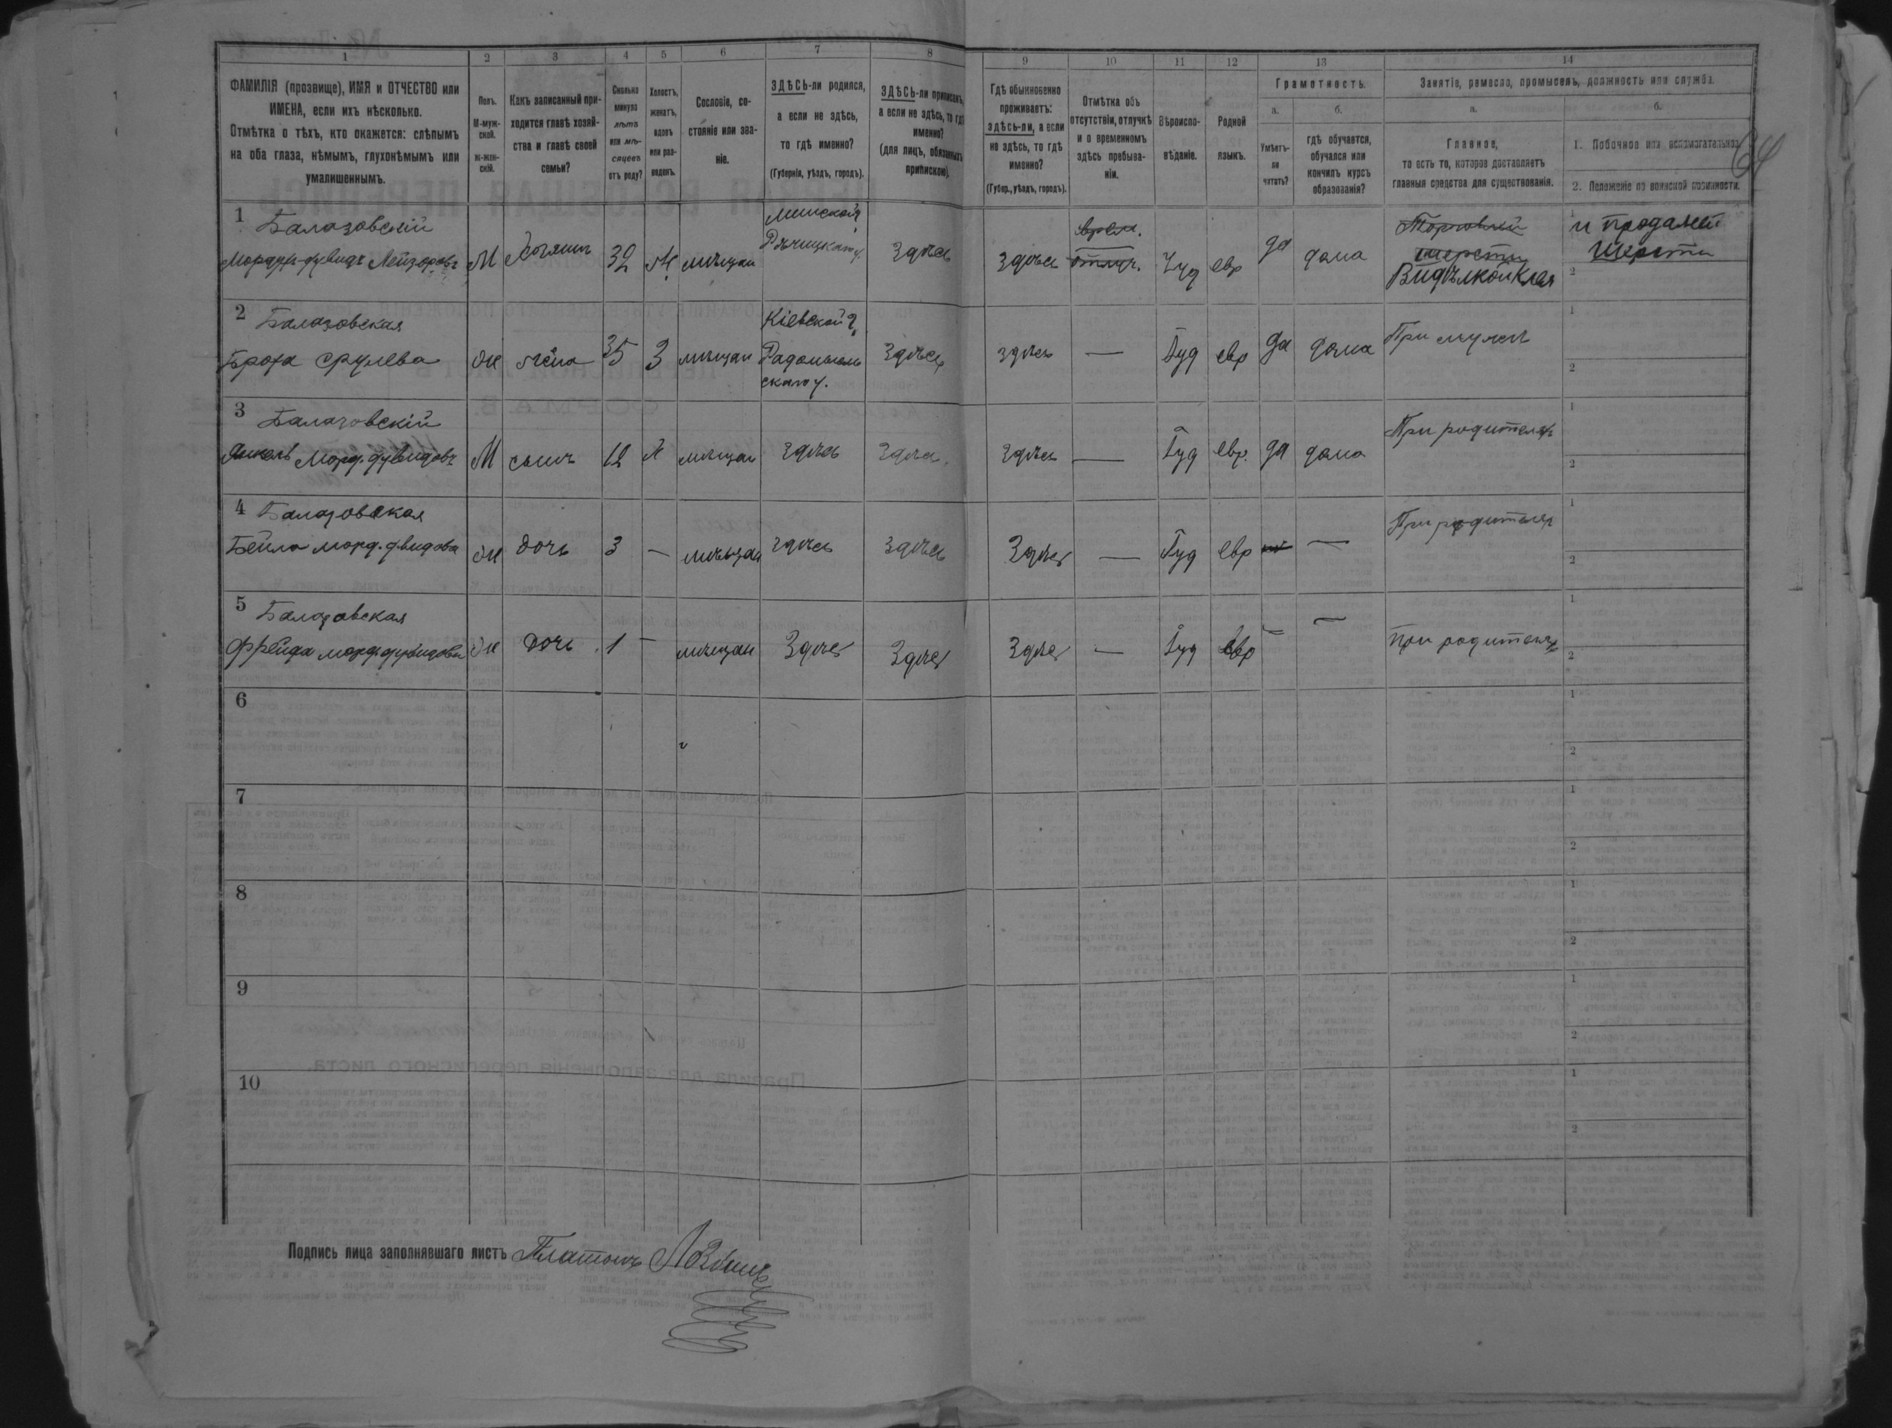 1 2 3 4 5 6 7 8 9 10 11 12 13 14
ФАМИЛІЯ (прозвище), ИМЯ и ОТЧЕСТВО или
ИМЕНА, если ихъ нѣсколько.
Отмѣтка о тѣхъ, кто окажется: слѣпымъ
на оба глаза, нѣмымъ, глухонѣмымъ или
умалишеннымъ.
Полъ.
М-муж-
ской.
ж-жен-
скій.
Какъ записанный при-
ходится главѣ хозяй-
ства и главѣ своей
семьи?
Сколько
минуло
лѣтъ
или мѣ-
сяцевъ
отъ роду?
Холостъ,
женатъ,
вдовъ
или раз-
веденъ.
Сословіе, со-
стояніе или зва-
ніе.
ЗДѢСЬ-ли родился,
а если не здѣсь,
то гдѣ именно?
(Губернія, уѣздъ, городъ).
ЗДѢСЬ-ли приписанъ,
а если не здѣсь, то гдѣ
именно?
(для лицъ, обязанныхъ
припискою).
Гдѣ обыкновенно
проживаетъ:
здѣсь-ли, а если
не здѣсь, то гдѣ
именно?
(Губер., уѣздъ, городъ).
Отмѣтка объ
отсутствіи, отлучкѣ
и о временномъ
здѣсь пребыва-
ніи.
Вѣроиспо-
вѣданіе.
Родной
языкъ.
Грамотность.
а.
Умѣетъ-
ли
читать?
б.
гдѣ обучается,
обучался или
кончилъ курсъ
образованія?
Занятіе, ремесло, промыселъ, должность или служба.
а.
Главное,
то есть то, которое доставляетъ
главныя средства для существованія.
б.
1. Побочное или вспомогательное.
2. Положеніе по воинской повинности.
64
1
Балазовскій
Мордух-дувидъ Лейзеровъ
М Хозяинъ 32 ж мѣщан
Минской г.
Рѣчицкаго у.
здѣсь
здѣсь
врем.
отлуч.
Іуд евр да дома
Торговлей
шерсти
Выдѣлкой клея
1 и продажей
шерсти
2
2
Балазовская
Броха Срулева
ж жена 35 З мѣщан
Кіевской г.
Радомысль
скаго у.
Здѣсь
здѣсь — Іуд евр да дома
При мужѣ
1
2
3
Балазовскій
Янкель Морд. дувидовъ
М сынъ 12 х мѣщан здѣсь здѣсь
здѣсь — Іуд евр. да дома
При родителях
1
2
4
Балазовская
Бейла морд. дувидова
ж дочь 3 — мѣщан здѣсь здѣсь
Здѣсь — Іуд евр —
При родителях
1
2
5
Балазовская
Фрейда морд. дувидова
ж дочь 1 — мѣщан Здѣсь Здѣсь
Здѣсь — Іуд евр — —
при родителях
1
2
6
1
2
7
1
2
8
1
2
9
1
2
10
1
2
Подпись лица заполнявшаго листъ Платонъ